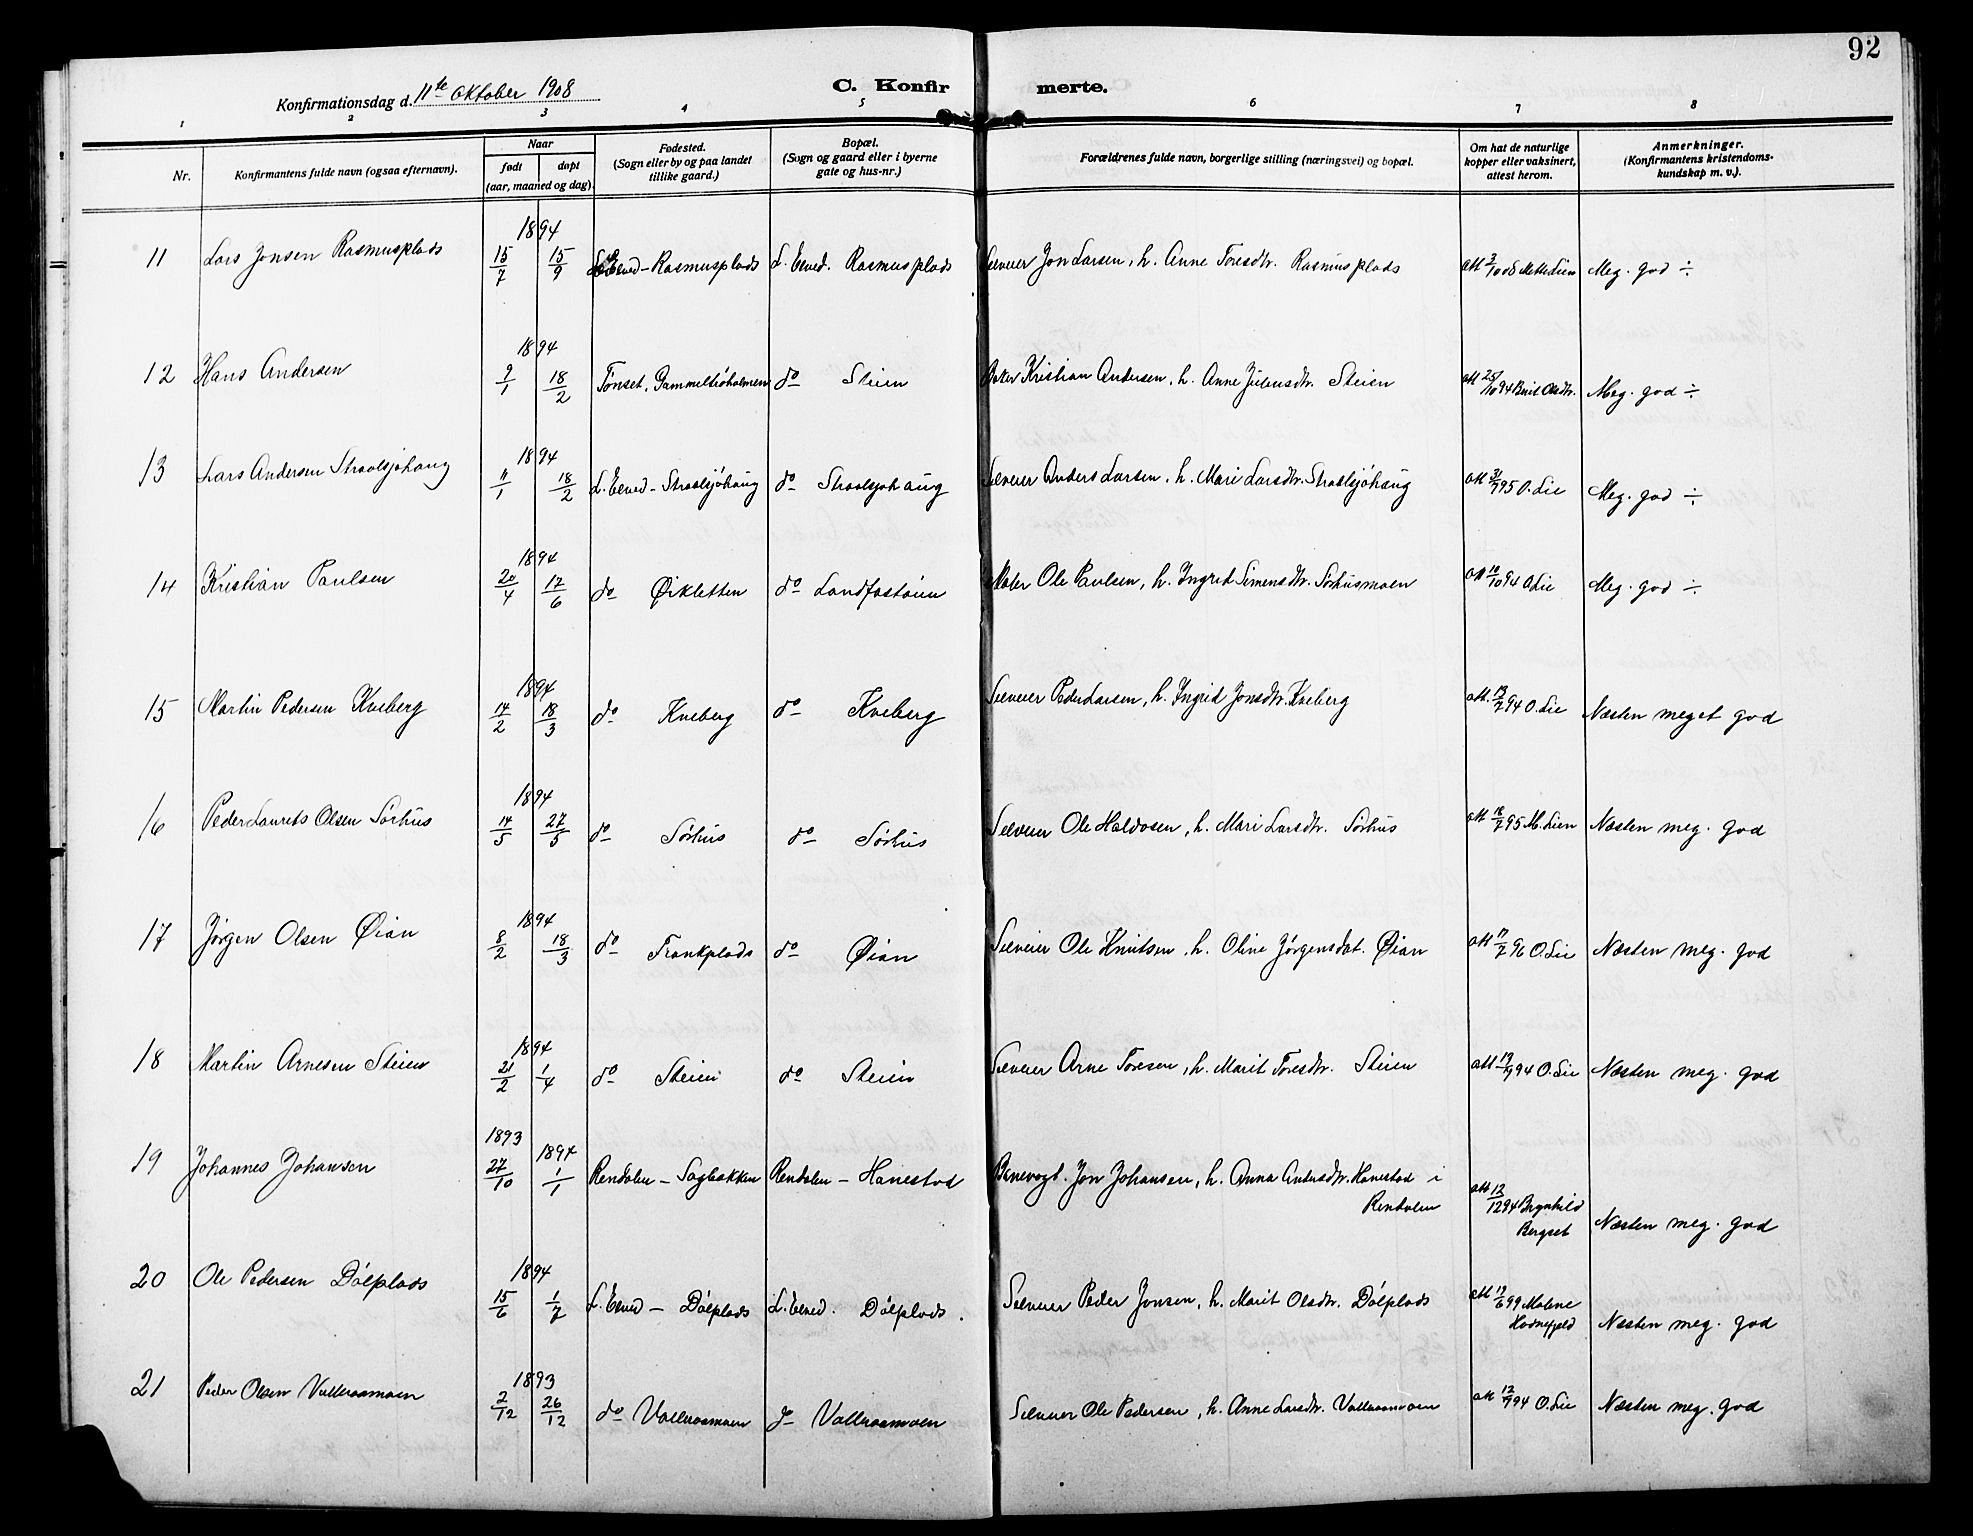 92
Konfirmationsdag d. 11te Oktober 1908
C. Konfirmerte.
1 2 3 4 5 6 7 8
Nr. Konfirmantens fulde navn (ogsaa efternavn). Naar født døpt (aar, maaned og dag) Fødested. (Sogn eller by og paa landet tillike gaard.) Bopæl. (Sogn og gaard eller i byerne gate og hus-nr.) Forældrenes fulde navn, borgerlige stilling (næringsvei) og bopæl. Om hat de naturlige kopper eller vaksinert, attest herom. Anmerkninger. (Konfirmantens kristendoms-kundskap m. v.).
11 Lars Jonsen Rasmusplads 1894 15/7 15/9 L. Elved - Rasmusplads L. Elved. Rasmusplads Selveier Jon Larsen, h. Anne Toresdtr. Rasmusplads att 3/10 08 Mette Lien Meg. god ÷
12 Hans Andersen 1894 9/1 18/2 Tønset, Gammeltrøholmen do Steien Kristian Andersen, h. Anne Julensdtr. Steien att 25/10 94 Berit Olsdtr. Meg. god ÷
13 Lars Andersen Straalsjøhaug 1894 11/1 18/2 L. Elved - Straalsjøhaug do Straalsjøhaug Selveier Anders Larsen, h. Mari Larsdtr. Straalsjøhaug att 3/7 95 O. Lie Meg. god ÷
14 Kristian Paulsen 1894 20/4 17/6 do Øikletten do Landfastøien Maler Ole Paulsen, h. Ingrid Simensdtr. Sørhusmoen att 10/10 94 O. Lie Meg. god ÷
15 Martin Pedersen Kveberg 1894 14/2 18/3 do Kveberg do Kveberg Selveier Peder Larsen, h. Ingrid Jonsdtr. Kveberg att. 13/7 94 O. Lie Næsten meget god
16 Peder Laurits Olsen Sørhus 1894 14/5 27/5 do Sørhus do Sørhus Selveier Ole Haldosen, h. Mari Larsdtr. Sørhus att 18/7 95 M. Lien Næsten meg. god
17 Jørgen Olsen Øian 1894 8/2 18/3 do Trønkplads do Øian Selveier Ole Knutsen, h. Oline Jørgensdat. Øian att 17/7 96 O. Lie Næsten meg. god
18 Martin Arnesen Steien 1894 21/2 1/4 do Steien do Steien Selveier Arne Toresen, h. Marit Toresdtr. Steien att 19/9 94 O. Lie Næsten meg. god
19 Johannes Johansen 1893 27/10 1894 1/1 Rendalen - Sagbakken Rendalen - Hanestad Banevogt. Jon Johansen, h. Anna Andersdtr. Hanestad i Rendalen att 12/12 94 Brynhild Bergset Næsten meg. god
20 Ole Pedersen Dølplads 1894 15/6 1/7 L. Elved - Dølplads L. Elved. Dølplads. Selveier Peder Jonsen, h. Marit Olsdtr. Dølplads att 17/6 99 Malene Hornefjeld Næsten meg. god
21 Peder Olsen Vallraamoen 1893 2/12 26/12 do Vallraamoen do Vallraamoen Selveier Ole Pedersen, h. Anne Larsdtr. Vallraamoen att 12/9 94 O. Lie Næsten meg. god